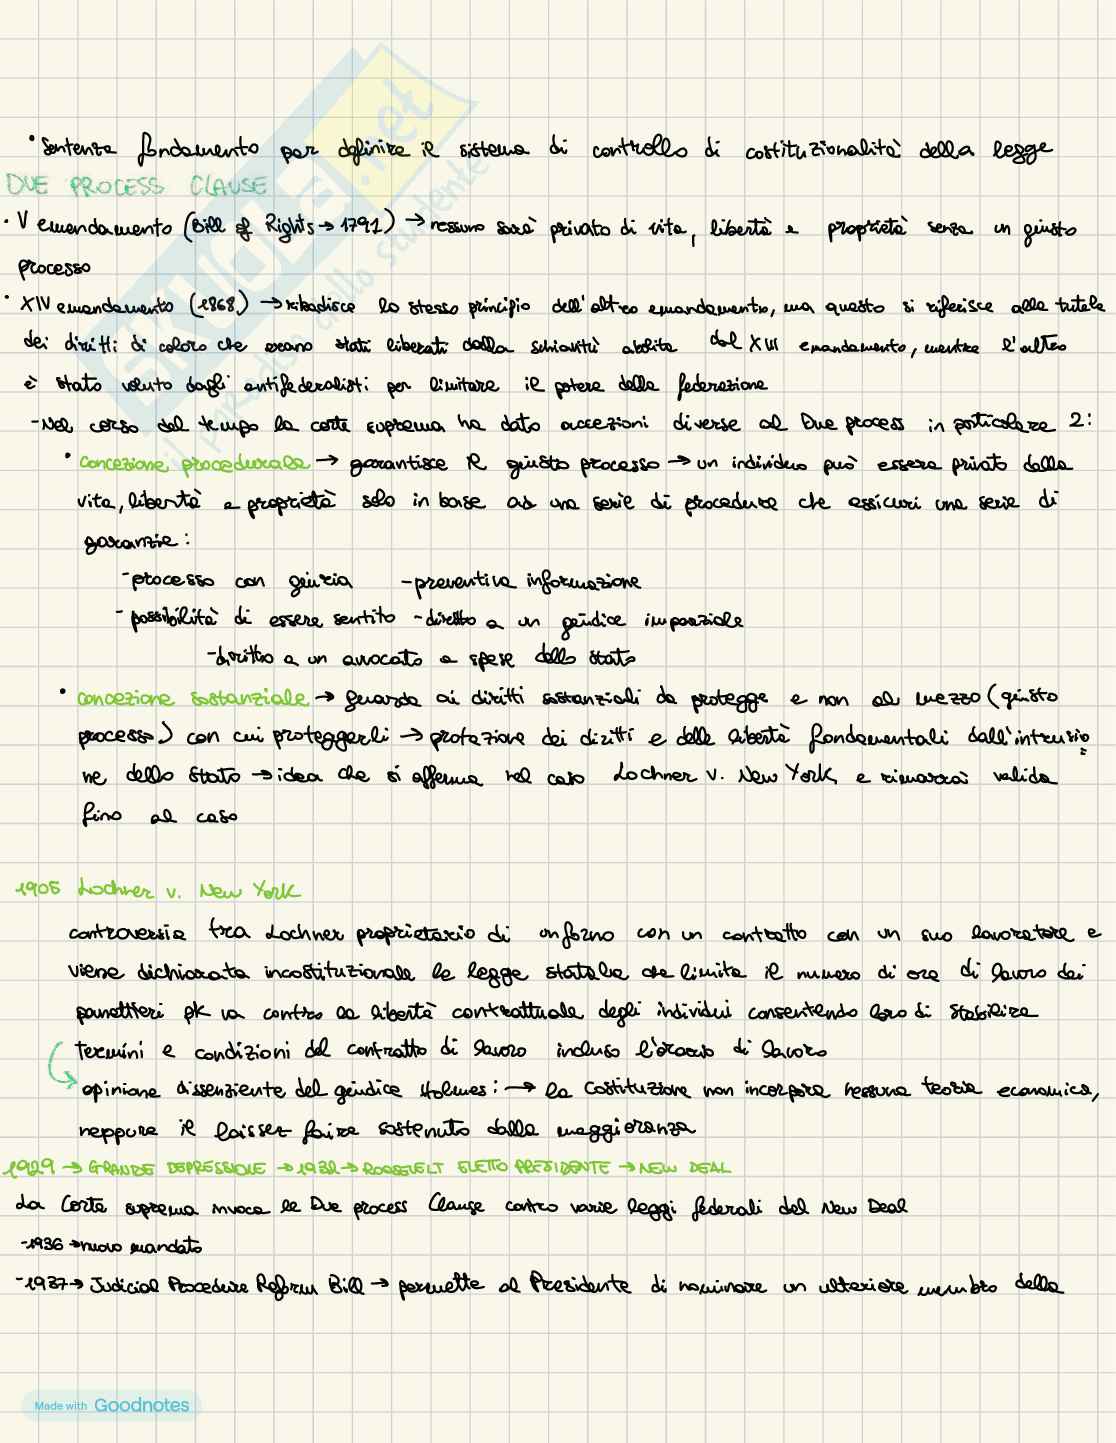 • Sentenza fondamento per definire il sistema di controllo di costituzionalità della legge
DUE PROCESS CLAUSE
• V emendamento (Bill of Rights → 1791) → nessuno sarà privato di vita, libertà e proprietà senza un giusto
processo
• XIV emendamento (1868) → ribadisce lo stesso principio dell'altro emendamento, ma questo si riferisce alla tutela
dei diritti di coloro che erano stati liberati dalla schiavitù abolita dal XIII emendamento, mentre l'altro
è stato voluto dagli antifederalisti per limitare il potere della federazione
- Nel corso del tempo la corte suprema ha dato accezioni diverse al Due process in particolare 2:
• concezione procedurale → garantisce il giusto processo → un individuo può essere privato della
vita, libertà e proprietà solo in base ad una serie di procedure che assicuri una serie di
garanzie:
- processo con giuria - preventiva informazione
- possibilità di essere sentito - diritto a un giudice imparziale
- diritto a un avvocato a spese dello stato
• concezione sostanziale → guarda ai diritti sostanziali da protegge e non al mezzo (giusto
processo) con cui proteggerli → protezione dei diritti e delle libertà fondamentali dall'intrusio
ne dello Stato → idea che si afferma nel caso Lochner v. New York e rimarrà valida
fino al caso
1905 Lochner v. New York
controversia tra Lochner proprietario di un forno con un contratto con un suo lavoratore e
viene dichiarata incostituzionale la legge statale che limita il numero di ore di lavoro dei
panettieri pk va contro la libertà contrattuale degli individui consentendo loro di stabilire
termini e condizioni del contratto di lavoro incluso l'orario di lavoro
opinione dissenziente del giudice Holmes: → la Costituzione non incorpora nessuna teoria economica,
neppure il laissez faire sostenuto dalla maggioranza
1929 → GRANDE DEPRESSIONE → 1932 → ROOSEVELT ELETTO PRESIDENTE → NEW DEAL
La Corte suprema invoca la Due process Clause contro varie leggi federali del New Deal
- 1936 → nuovo mandato
- 1937 → Judicial Procedure Reform Bill → permette al Presidente di nominare un ulteriore membro della
Made with Goodnotes